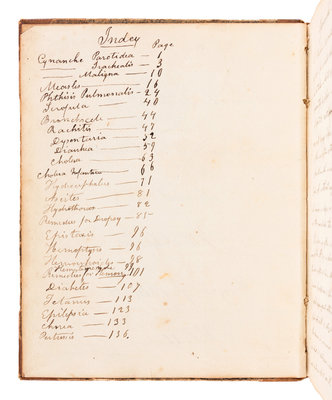 Index
Page
Cynanche Parotidea — 1
— Trachealis — 3
— Maligna — 10
Measles — 16
Phthisis Pulmonalis — 29
Scrofula — 40
Bronchocele — 44
Rachitis — 47
Dysenteria — 52
Diarrhea — 59
Cholera — 63
Cholera Infantum — 66
Hydrocephalus — 71
Ascites — 81
Hydrothorax — 82
Remedies for Dropsy — 85
Epistaxis — 96
Hemoptysis — 96
Hemorrhoids — 98
Remedies for 101
Diabetes — 107
Tetanus — 113
Epilepsia — 123
Chorea — 133
Pertussis — 136